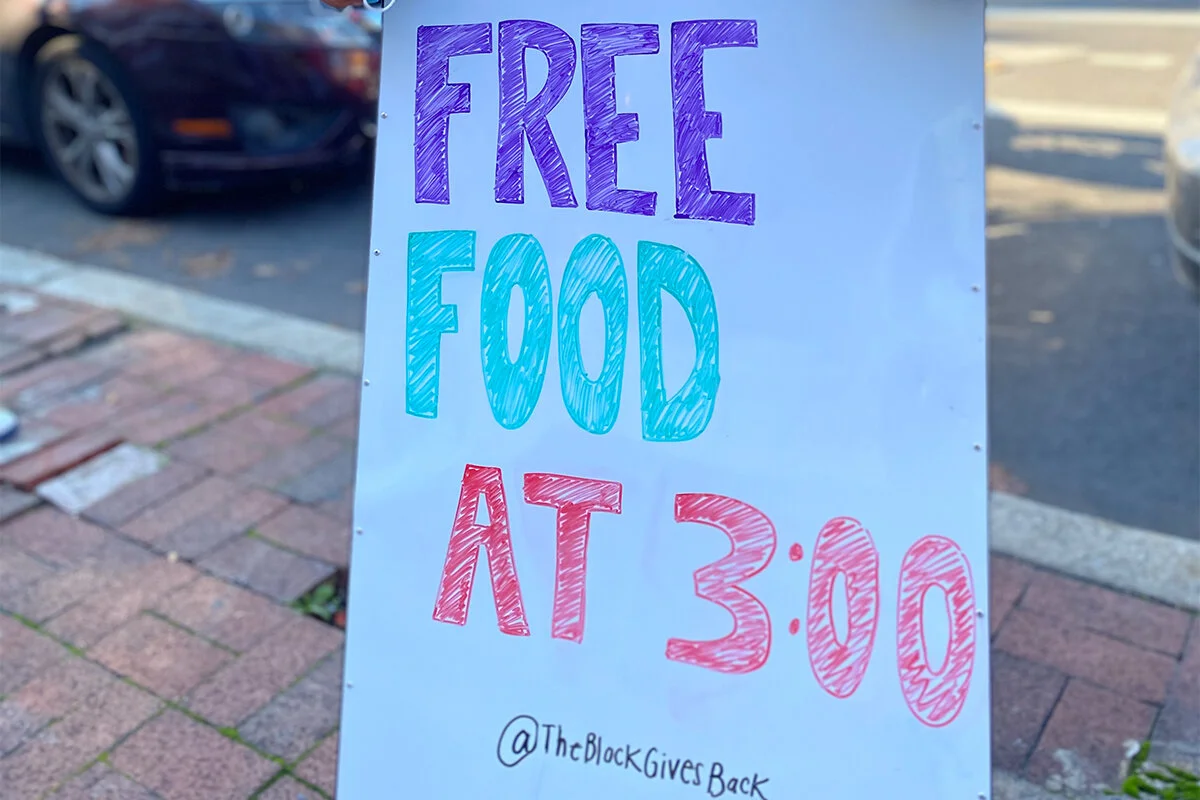 FREE
FOOD
AT 3:00
@TheBlockGivesBack